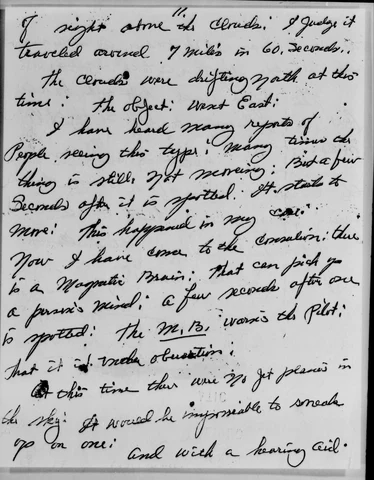 11.
of sight above the clouds: I Judge it
traveled around 7 miles in 60. Seconds.
The clouds were drifting North at this
time: The object: went East:
I have heard many reports of
People seeing this type: many times the
thing is still. Not moving: But a few
Seconds after it is spotted. It starts to
move: This happened in my case:
Now I have come to the conclusion: there
is a Magnetic Brain: That can pick up
a person's mind: a few seconds after one
is spotted: The M.B. warns the Pilot:
That it is under observation:
At this time there were No Jet planes in
the sky: It would be impossible to sneak
up on one: and with a hearing aid.